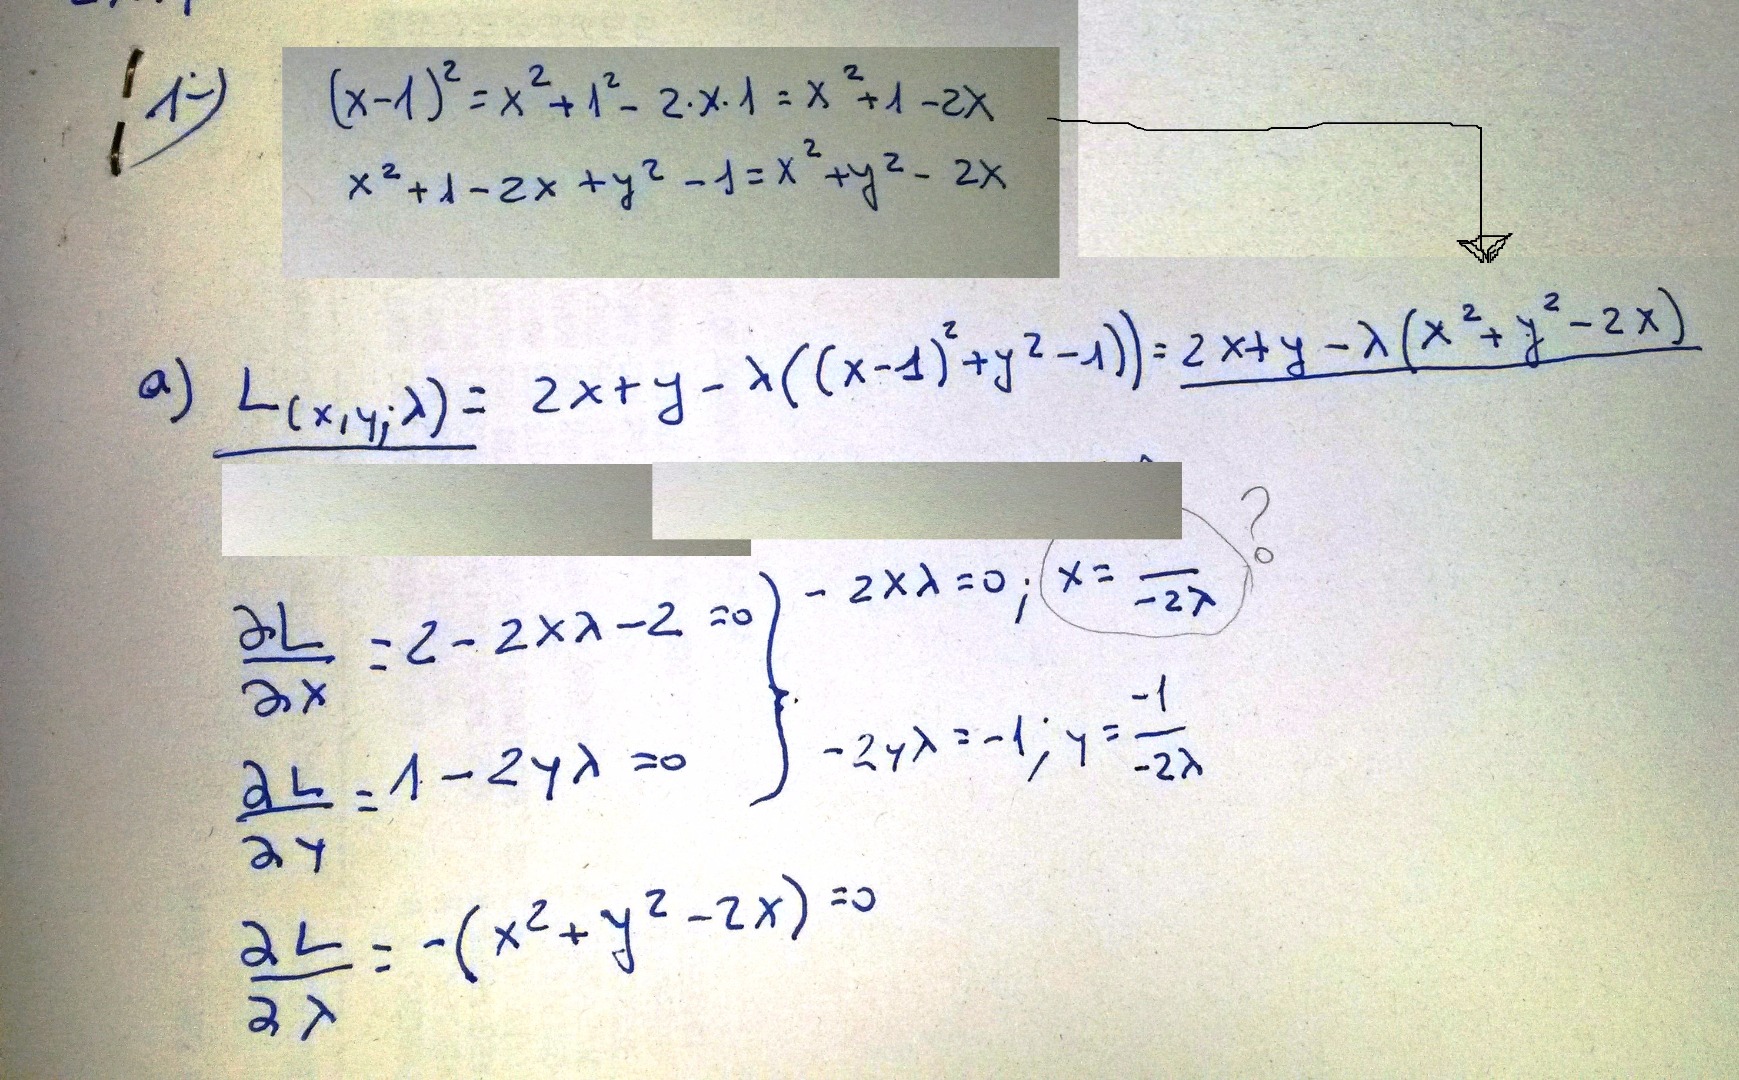 1-)
(x-1)² = x² + 1² - 2·x·1 = x² + 1 - 2x
x² + 1 - 2x + y² - 1 = x² + y² - 2x
a) L(x,y;λ) = 2x + y - λ((x-1)² + y² - 1)) = 2x + y - λ(x² + y² - 2x)
∂L/∂x = 2 - 2xλ - 2 = 0 } - 2xλ = 0; x = /-2λ ?
∂L/∂y = 1 - 2yλ = 0 } - 2yλ = -1; y = -1/-2λ
∂L/∂λ = -(x² + y² - 2x) = 0